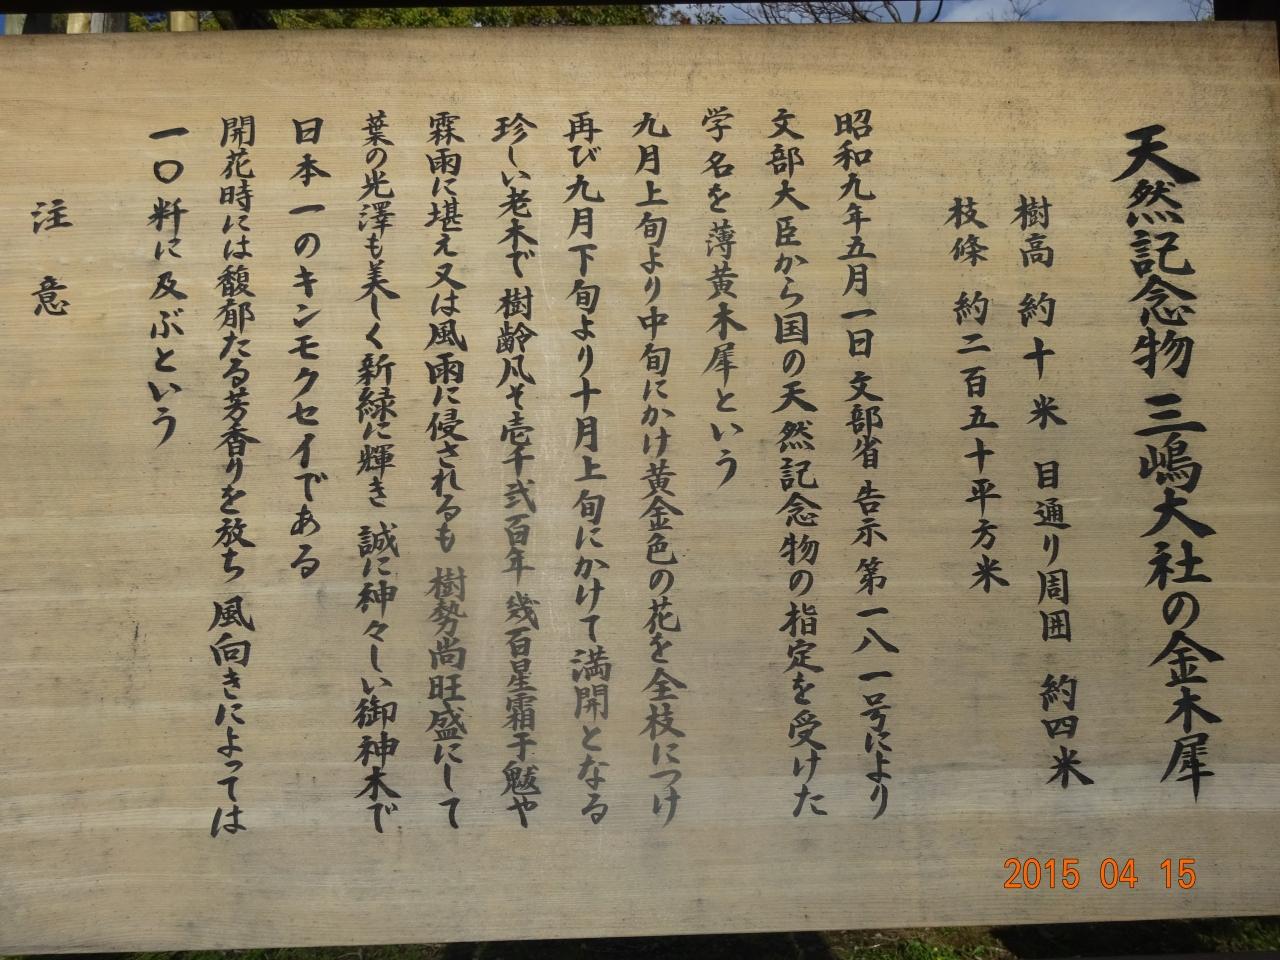 天然記念物 三嶋大社の金木犀
樹高 約十米 目通り周囲 約四米
枝條 約二百五十平方米
昭和九年五月一日 文部省告示第一八一号により
文部大臣から国の天然記念物の指定を受けた
学名を薄黄木犀という
九月上旬より中旬にかけ黄金色の花を全枝につけ
再び九月下旬より十月上旬にかけて満開となる
珍しい老木で 樹齢凡そ壱千弐百年 幾百星霜干魃や
霖雨に堪え又は風雨に侵されるも 樹勢尚旺盛にして
葉の光澤も美しく新緑に輝き 誠に神々しい御神木で
日本一のキンモクセイである
開花時には馥郁たる芳香りを放ち 風向きによっては
一〇粁に及ぶという
注意
2015 04 15